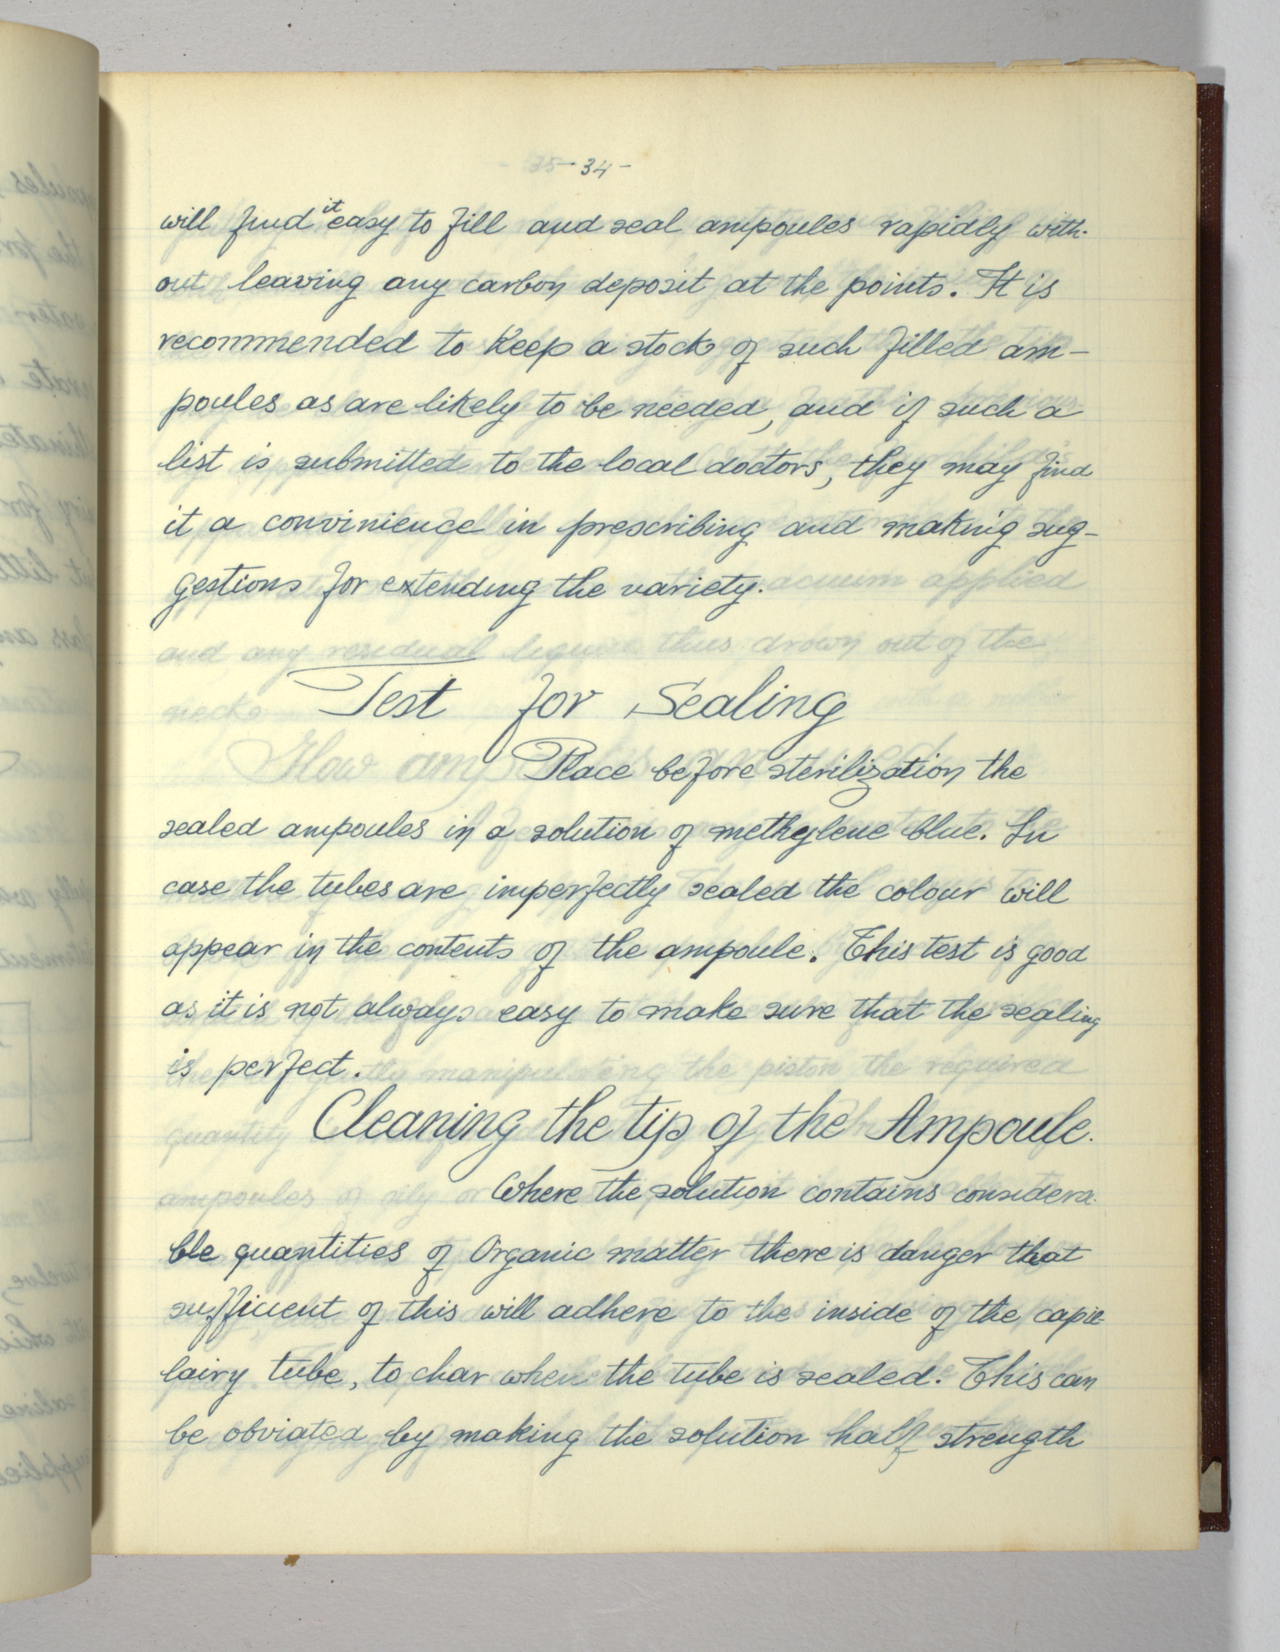 - 34 -
will find it easy to fill and seal ampoules rapidly with-
out leaving any carbon deposit at the points. It is
recommended to keep a stock of such filled am-
poules as are likely to be needed, and if such a
list is submitted to the local doctors, they may find
it a convinience in prescribing and making sug-
gestions for extending the variety.
Test for Sealing
Place before sterilization the
sealed ampoules in a solution of methylene blue. In
case the tubes are imperfectly sealed the colour will
appear in the contents of the ampoule. This test is good
as it is not always easy to make sure that the sealing
is perfect.
Cleaning the tip of the Ampoule.
Where the solution contains considera-
ble quantities of Organic matter there is danger that
sufficient of this will adhere to the inside of the capil-
lairy tube, to char when the tube is sealed. This can
be obviated by making the solution half strength